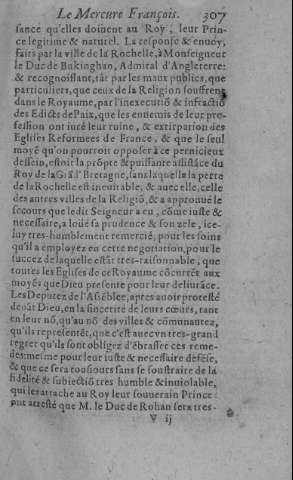 Le Mercure François. 307
sance qu'elles doiuent au Roy, leur Prin-
ce legitime & naturel. La response & enuoy,
faits par la ville de la Rochelle, à Monseigneur
le Duc de Bukinghan, Admiral d'Angleterre:
& recognoissant, tāt par les maux publics, que
particuliers, que ceux de la Religion souffrent
dans le Royaume, par l'inexecutiō & infractiō
des Edicts de Paix, que les ennemis de leur pro-
fession ont iuré leur ruine, & extirpation des
Eglises Reformees de France, & que le seul
moyē qu'on pourroit opposer à ce pernicieux
dessein, estoit la propre & puissante assistāce du
Roy de la Grād' Bretagne, sans laquelle la perte
de la Rochelle est ineuitable, & auec elle, celle
des autres villes de la Religiō, & a approuué le
secours que ledit Seigneur a eu, cōme iuste &
necessaire, a loüé sa prudence & son zele, ice-
luy tres-humblement remercié, pour les soins
qu'il a employez en cette negotiation, pour le
succez de laquelle estāt tres-raisonnable, que
toutes les Eglises de ce Royaume cōcurrēt aux
moyēs que Dieu presente pour leur deliurāce.
Les Deputez de l'Asēblee, apres auoir protesté
deuāt Dieu, en la sincerité de leurs cœurs, tant
en leur nō, qu'au nō des villes & cōmunautez,
qu'ils representēt, que c'est auec vn tres-grand
regret qu'ils sont obligez d'ēbrasser ces reme-
des mesme pour leur iuste & necessaire défēse,
& que ce sera tousiours sans se soustraire de la
fidelité & subiectiō tres humble & inuiolable,
qui les attache au Roy leur souuerain Prince:
ont arresté que M. le Duc de Rohan sera tres-
V ij